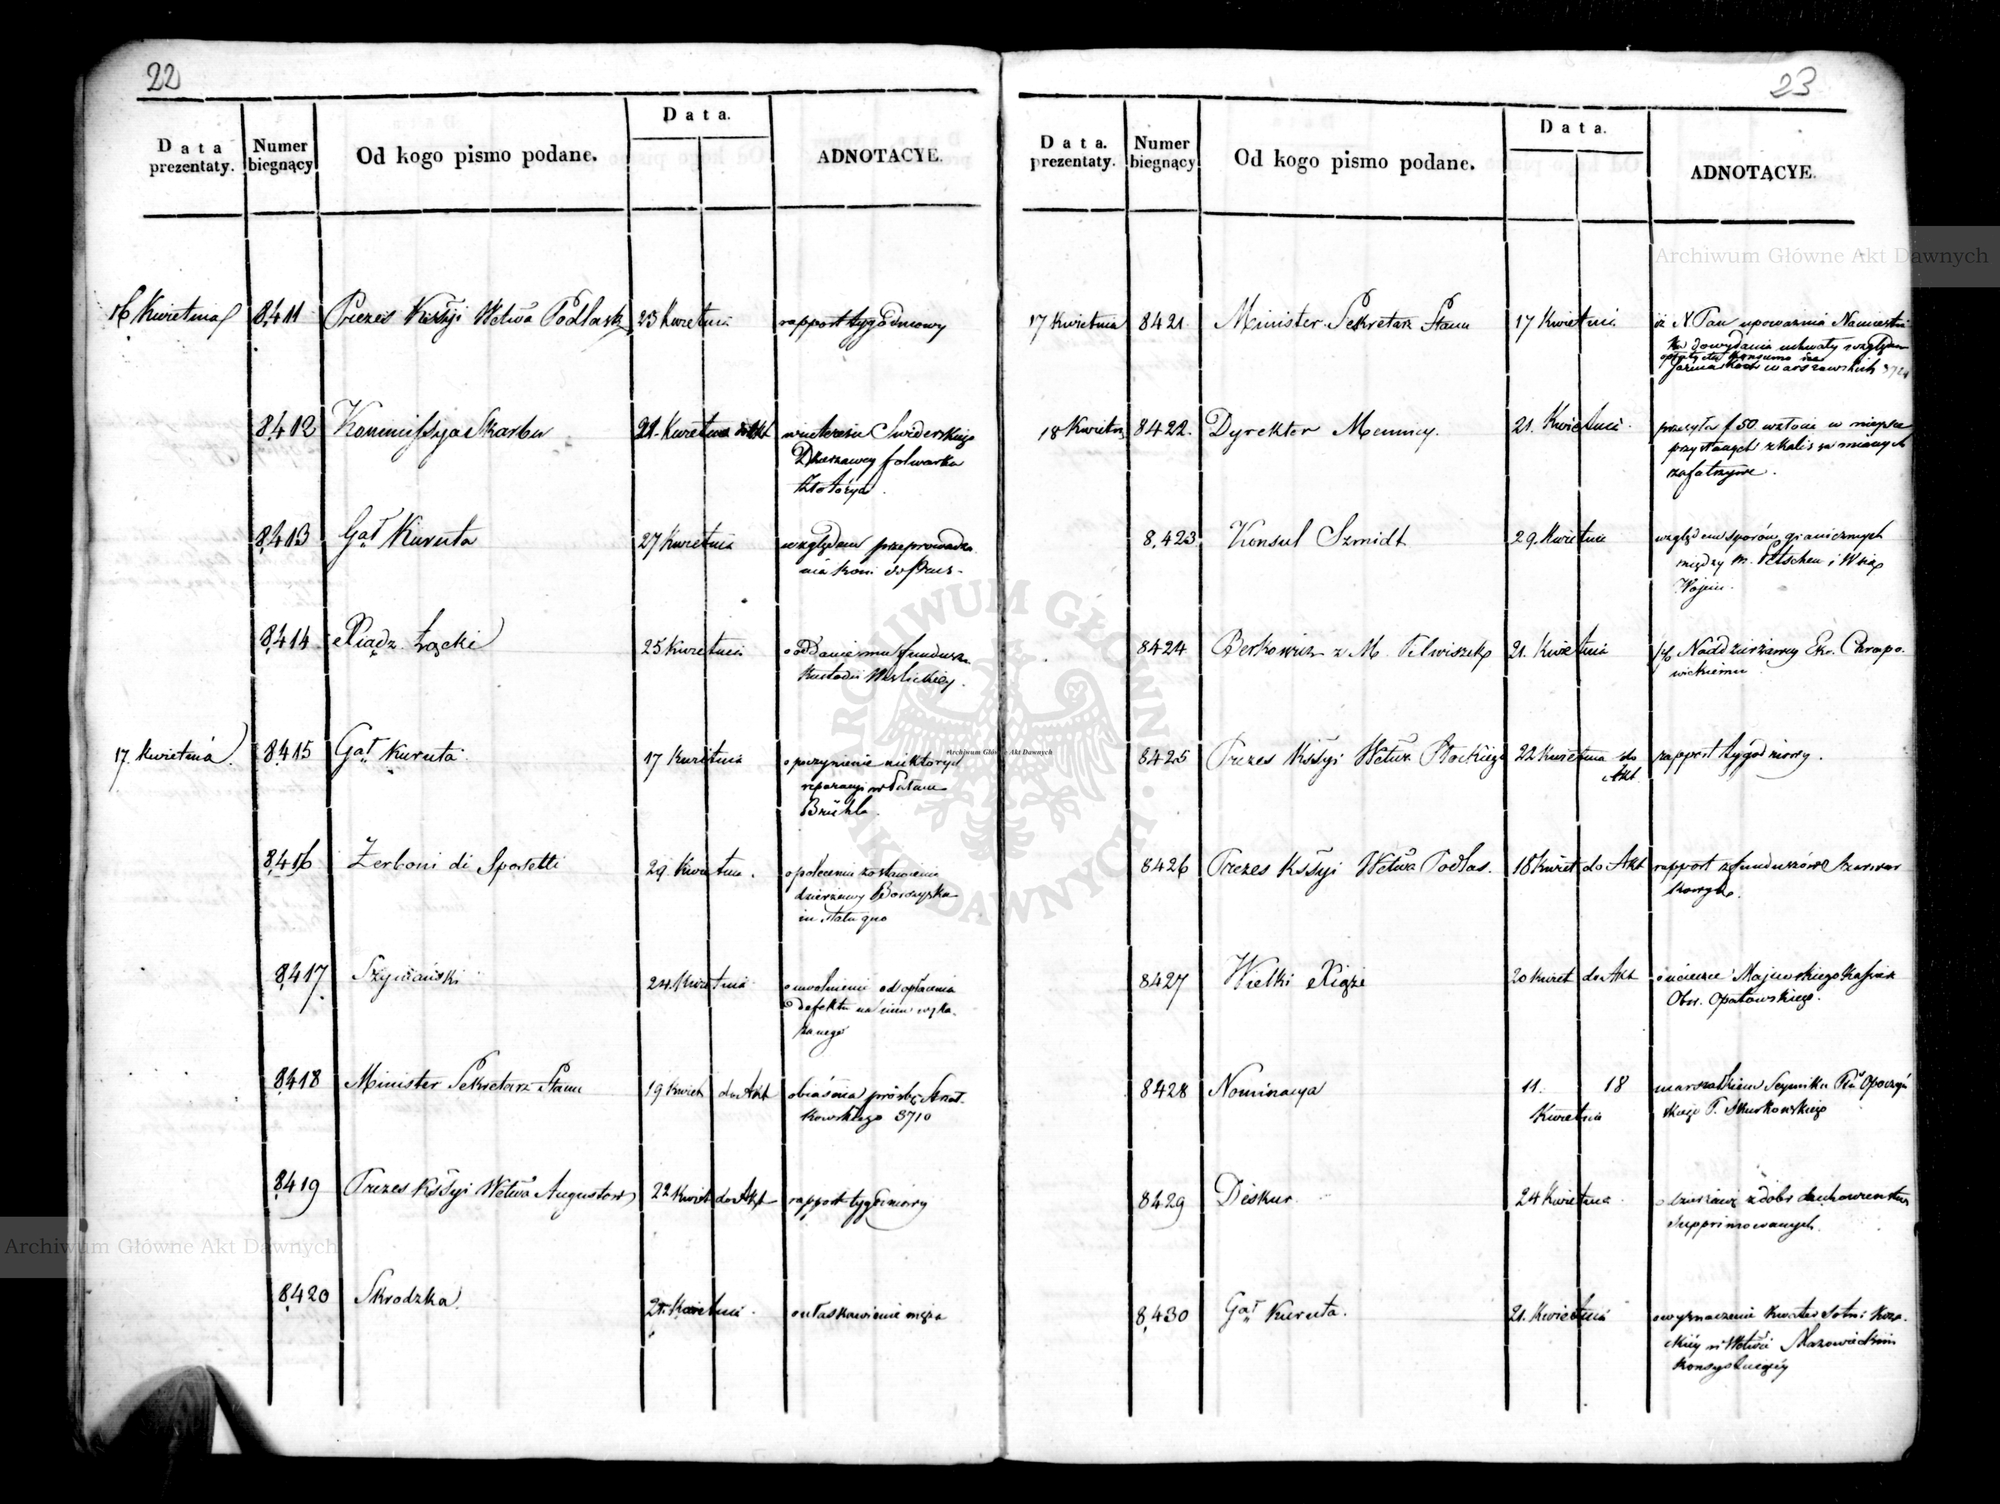 22
Data prezentaty.
Numer biegnący
Od kogo pismo podane.
Data.
ADNOTACYE.
16 Kwietnia 8411 Prezes Kśśyi Wctwa Podlask 23 Kwietnia rapport tygodniowy
8412 Kommissya Skarbu 21. Kwietnia do Akt w interesie Świderskiego
Dzierzawcy folwarku
Złotorya.
8413 Gał Kuruta 27 Kwietnia względem przeprowadze
nia koni do Prus.
8414 Xiądz Łącki 25 Kwietnia o oddanie mu fundusz
Kustodii Wiślickiey.
17. kwietnia. 8415 Gał Kuruta 17 Kwietnia o poczynienie niektórych
reparacyi w Pałacu
Brühla.
8416 Zerboni di Sposetti 29. Kwietnia. o polecenie zostawienia
dzierżawy Borzyska
in statu quo
8417 Szymański 24. Kwietnia o uwolnienie od opłacenia
defektu na nim wyka-
zanego
8418 Minister Sekretarz Stanu 19 Kwiet do Akt obiaśnia prośbę
kowskiego 3710
8419 Prezes Kśśyi Wctwa Augustow 22 Kwiet do Akt rapport tygodniowy
8420 Skrodzka. 21. Kwietnia. o ułaskawienie męża
23
Data. prezentaty.
Numer biegnący
Od kogo pismo podane.
Data.
ADNOTACYE.
17 Kwietnia 8421 Minister Sekretarz Stanu 17 Kwietnia iż N. Pan upoważnia Namiestni
ka do wydania uchwały względem
opłaty konsumo
Jarmarkach warszawskich
18 Kwietn 8422. Dyrektor Mennicy. 21. Kwietnia. przesyła f 50 w złocie w miejsce
przysłanych z Kalisza mianych
za fałszywe.
8423 Konsul Szmidt 29. Kwietnia względem sporów granicznych
między m. Pitschen i Wsią
Woien.
8424 Berkowicz z M. Pilwiszek 21. Kwietnia Naddzierżawcy Ekr. Chrapo-
wickiemu
8425 Prezes Kśśyi Wctwa Płockiego 22 Kwietnia do Akt rapport tygodniowy.
8426 Prezes Kśśyi Wctwa Podlas. 18 Kwiet do Akt rapport z funduszów Szarwar
kowych.
8427 Wielki Xiąże 20 Kwiet do Akt o ucieczce Majewskiego Kassiera
Obw. Opatowskiego.
8428 Nominacya 11. 18 Kwietnia marszałkiem Seymiku Ptu Opoczyń
skiego P.
8429 Diskur. 24 Kwietnia o dzierżawę z dóbr duchowieństwa
suppriowanych.
8430 Gał Kuruta. 21. Kwietnia o wyznaczenie kwater Sotni Koza-
ckiey w Wctwie Mazowieckim
konsystuiącey
Archiwum Główne Akt Dawnych
Archiwum Główne Akt Dawnych
Archiwum Główne Akt Dawnych
ARCHIWUM GŁÓWNE AKT DAWNYCH